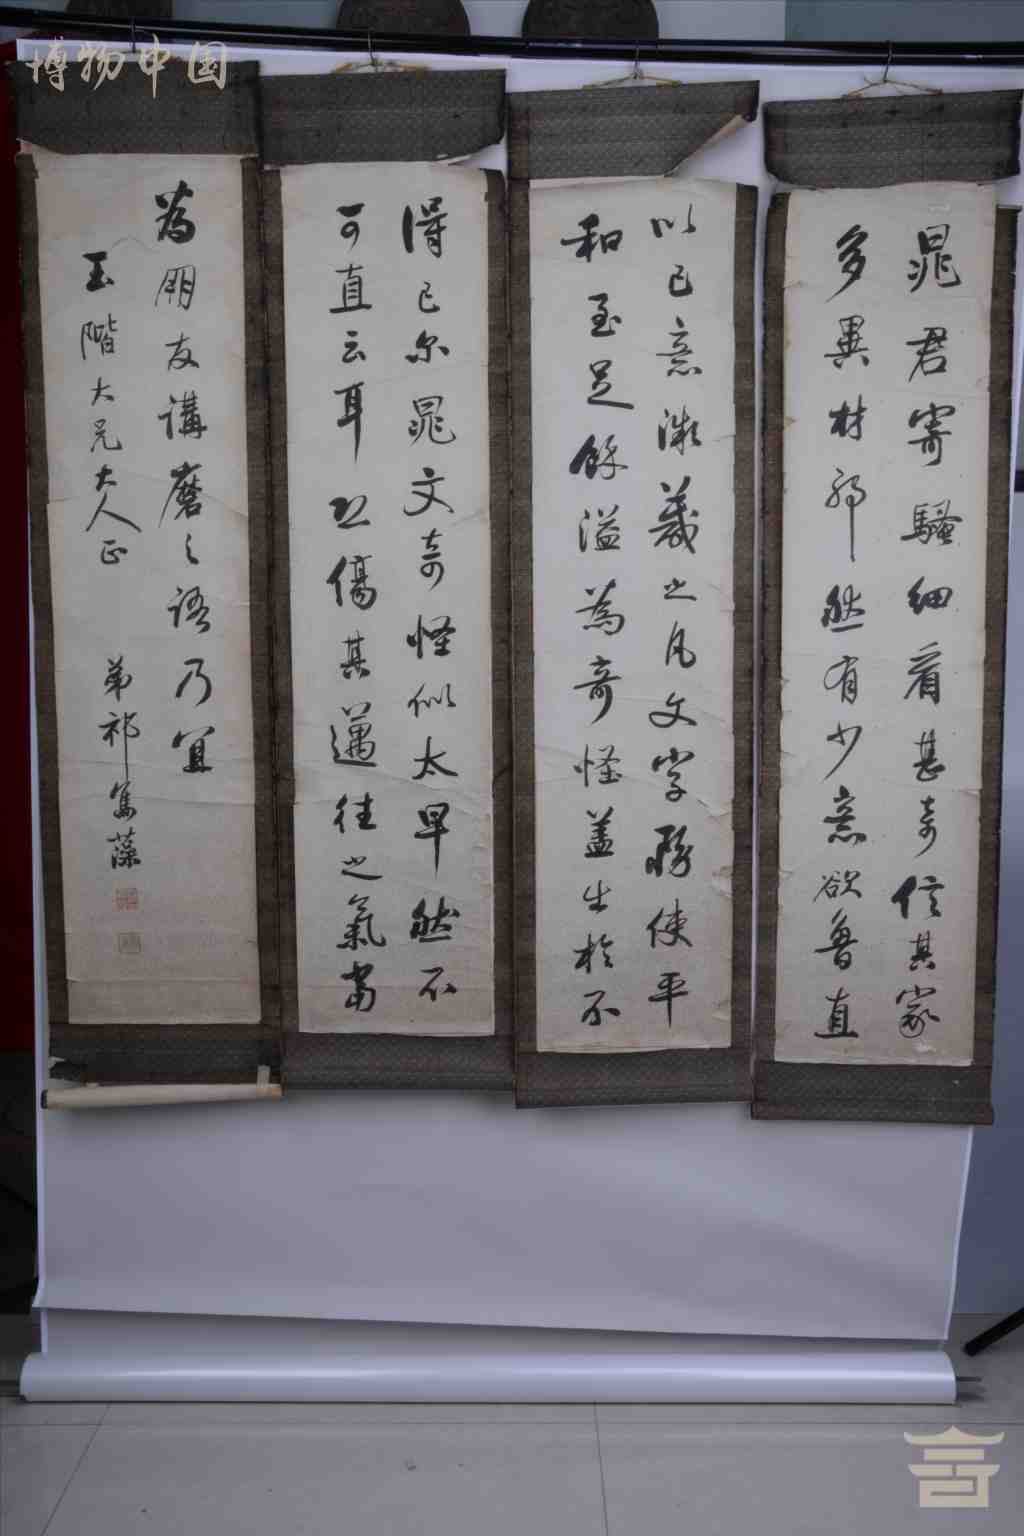 博物中国
晁君寄騷細看甚奇信其家
多異材邪然有少意欲魯直
以己意微箴之凡文字務使平
和至足餘溢為奇怪蓋出於不
得已尔晁文奇怪似太早然不
可直云耳恐傷其邁往之氣當
為朋友講磨之語乃宜
玉階大兄大人正
弟祁寯藻